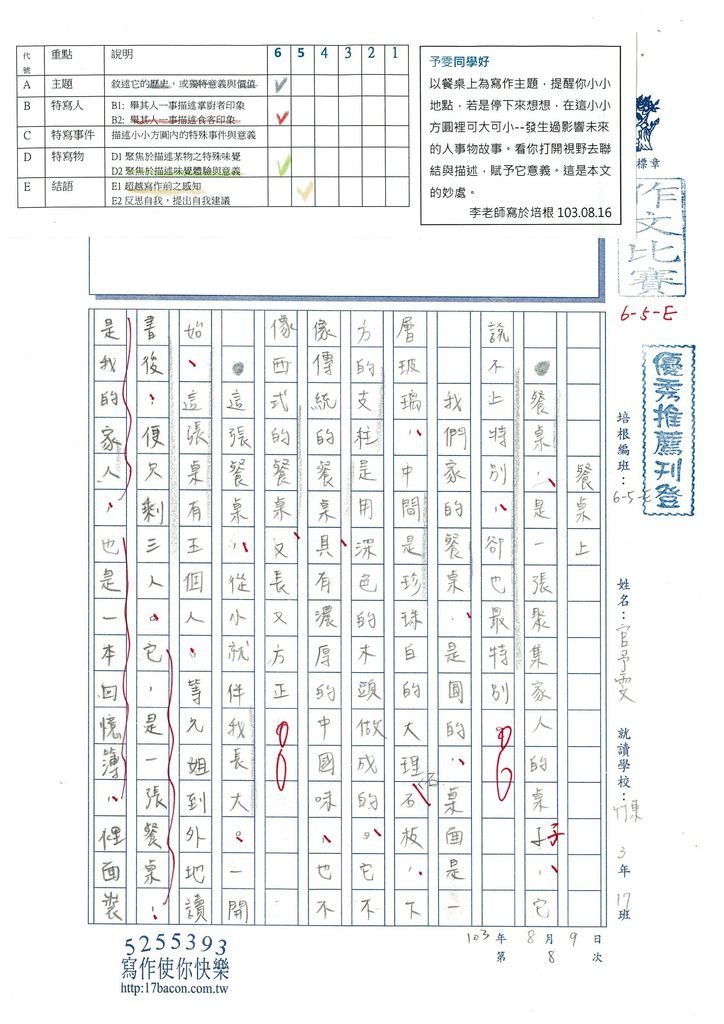 代號 重點 說明 6 5 4 3 2 1
A 主題 敘述它的歷史，或獨特意義與價值
B 特寫人 B1: 舉其人一事描述掌廚者印象
B2: 舉其人一事描述食客印象
C 特寫事件 描述小小方圓內的特殊事件與意義
D 特寫物 D1 聚焦於描述某物之特殊味覺
D2 聚焦於描述味覺體驗與意義
E 結語 E1 超越寫作前之感知
E2 反思自我，提出自我建議
予雯同學好
以餐桌上為寫作主題，提醒你小小
地點，若是停下來想想，在這小小
方圓裡可大可小--發生過影響未來
的人事物故事。看你打開視野去聯
結與描述，賦予它意義。這是本文
的妙處。
李老師寫於培根 103.08.16
標章
作文比賽
6-5-E
優秀推薦刊登
培根編班：6-5-E
姓名：官予雯
就讀學校：竹東
3年17班
餐桌上
餐桌，是一張聚集家人的桌子，它
說不上特別，卻也最特別。
我們家的餐桌，是圓的，桌面是一
層玻璃，中間是珍珠白的大理石板，下
方的支柱是用深色的木頭做成的。它不
像傳統的餐桌具有濃厚的中國味，也不
像西式的餐桌又長又方正。
這張餐桌，從小就伴我長大。一開
始，這張桌有五個人，等兄姐到外地讀
書後，便只剩三人。它，是一張餐桌，
是我的家人，也是一本回憶簿，裡面裝
103年8月9日
第8次
5255393
寫作使你快樂
http:17bacon.com.tw